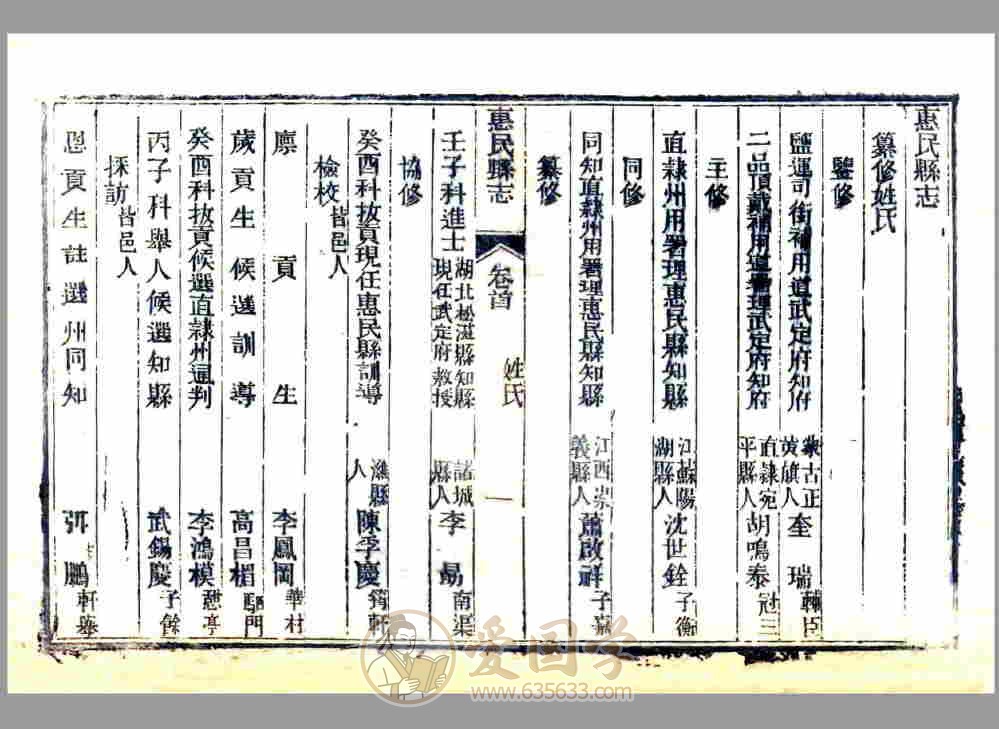 惠民縣志
纂修姓氏
鑒修
鹽運司銜補用道武定府知府 蒙古正黃旗人 奎瑞 輔臣
二品頂戴補用道署理武定府知府 直隷宛平縣人 胡鳴泰 冠三
主修
直隷州用署理惠民縣知縣 江蘇陽湖縣人 沈世銓 子衡
同修
同知直隷州用署理惠民縣知縣 江西崇義縣人 蕭啟祥 子嘉
纂修
惠民縣志 卷首 姓氏 一
壬子科進士 湖北松滋縣知縣現任武定府教授 諸城縣人 李勗 南渠
協修
癸酉科拔貢現任惠民縣訓導 濰縣人 陳孚慶 筠軒
檢校 皆邑人
廩貢生 李鳳岡 華村
歲貢生候選訓導 高昌楣 駟門
癸酉科拔貢候選直隷州通判 李鴻模 憩亭
丙子科舉人候選知縣 武錫慶 子餘
採訪 皆邑人
恩貢生註選州同知 鵬 軒舉
爱国学
www.635633.com